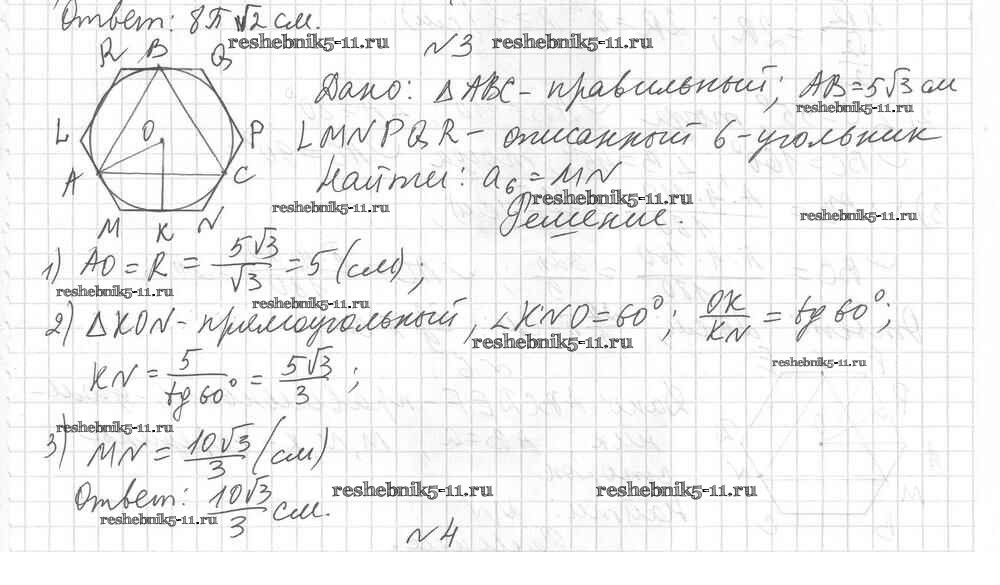 Ответ: 8π√2 см.
reshebnik5-11.ru
№3
reshebnik5-11.ru
R B Q
Дано: △ABC - правильный; AB = 5√3 см
reshebnik5-11.ru
L O P
LMNPQR - описанный 6-угольник
A C
Найти: a₆ = MN
reshebnik5-11.ru
reshebnik5-11.ru
Решение.
reshebnik5-11.ru
M K N
1) AO = R = 5√3/√3 = 5 (см);
reshebnik5-11.ru
reshebnik5-11.ru
2) △KON - прямоугольный, ∠KNO = 60°; OK/KN = tg 60°;
reshebnik5-11.ru
reshebnik5-11.ru
KN = 5/tg 60° = 5√3/3;
reshebnik5-11.ru
3) MN = 10√3/3 (см)
Ответ: 10√3/3 см.
reshebnik5-11.ru
reshebnik5-11.ru
reshebnik5-11.ru
№4